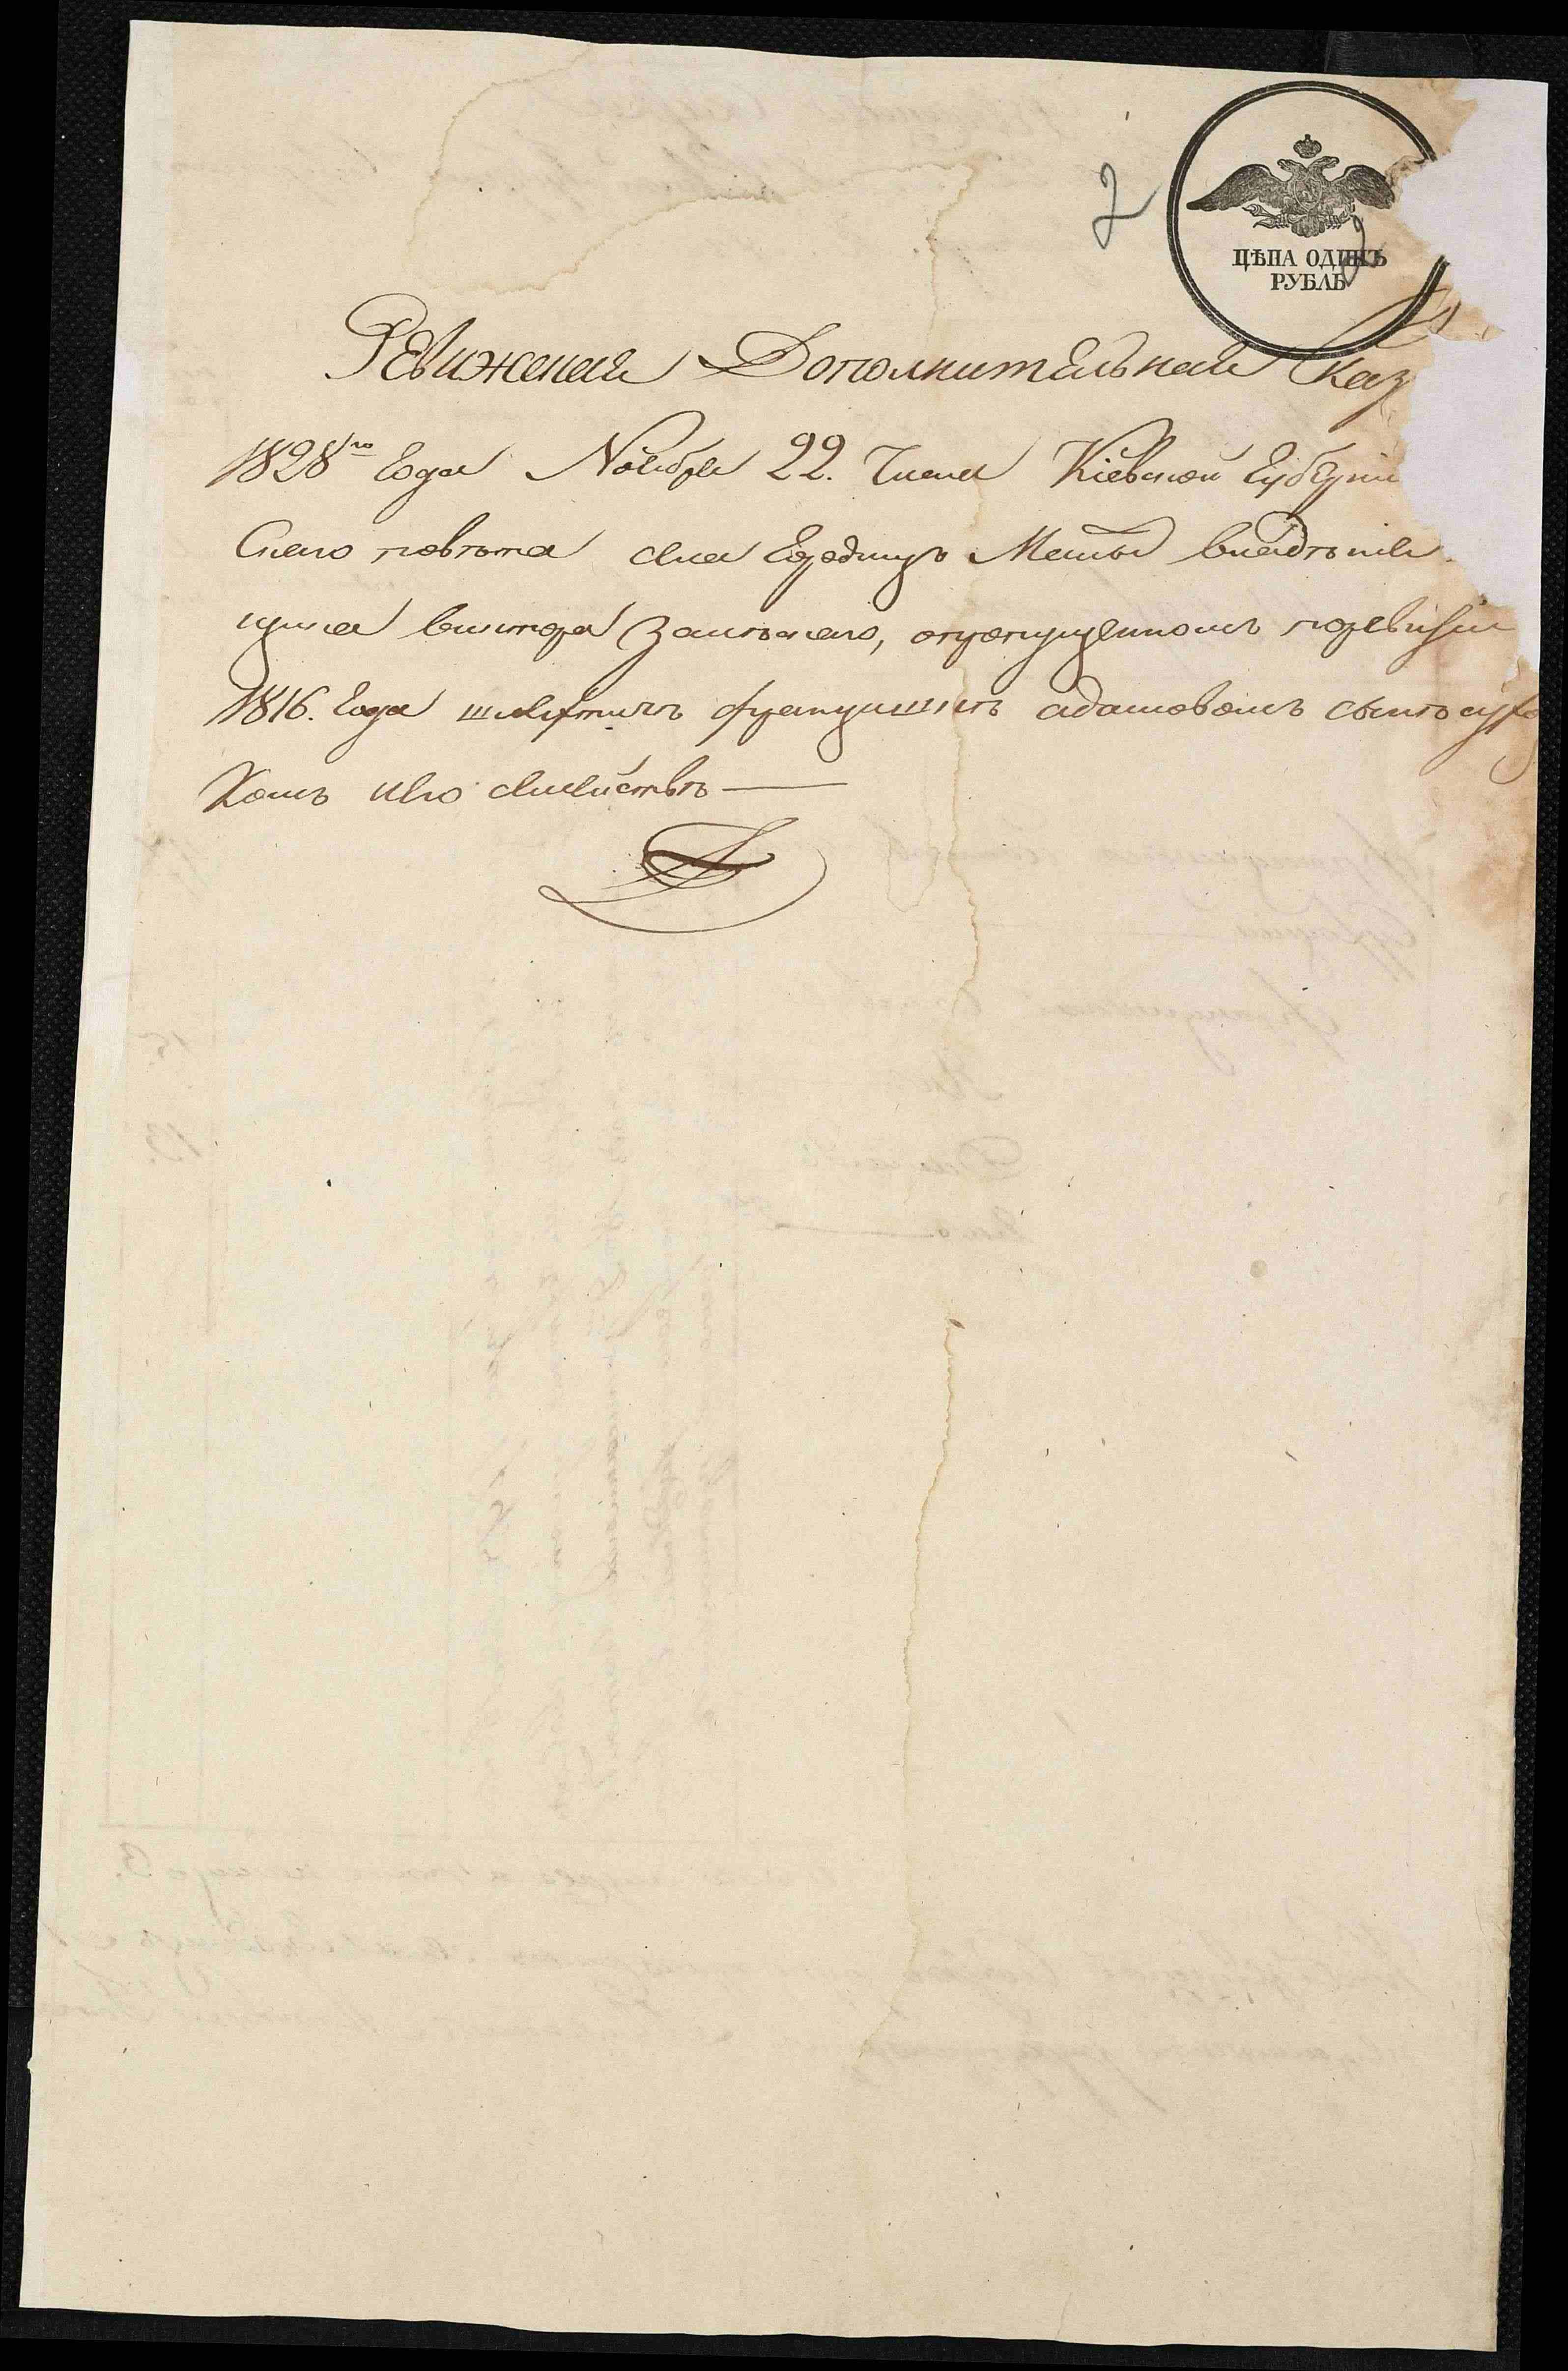 2
ЦѢНА ОДИНЪ
РУБЛЬ
Ревижская Дополнительная Сказ
1828го Года Ноября 22. Числа Кіевской Губерніи
Скаго повѣта села Малой владѣнія
Виктора Залѣскаго, опропущенномъ поревизіи
1816. Года шляхтичѣ францишкѣ адамовомъ сынѣ
Комъ иего семействѣ —